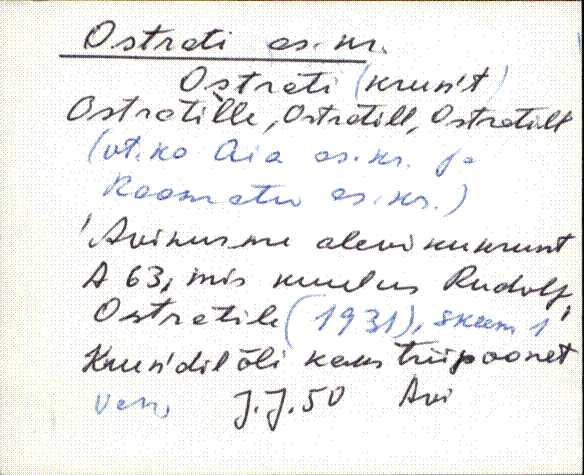 Ostrati as.kr.
Ostrati (krun't)
Ostratille, Ostratill, Ostratilt
(vt. ka Aia as.kr. ja
Raamatu as.kr.)
'Avinurme alevikukrunt
A 63, mis kuulus Rudolf
Ostratile' (1931), skeem 1
Krun'dil õli kaks triipoonet
J.J.50 Avi